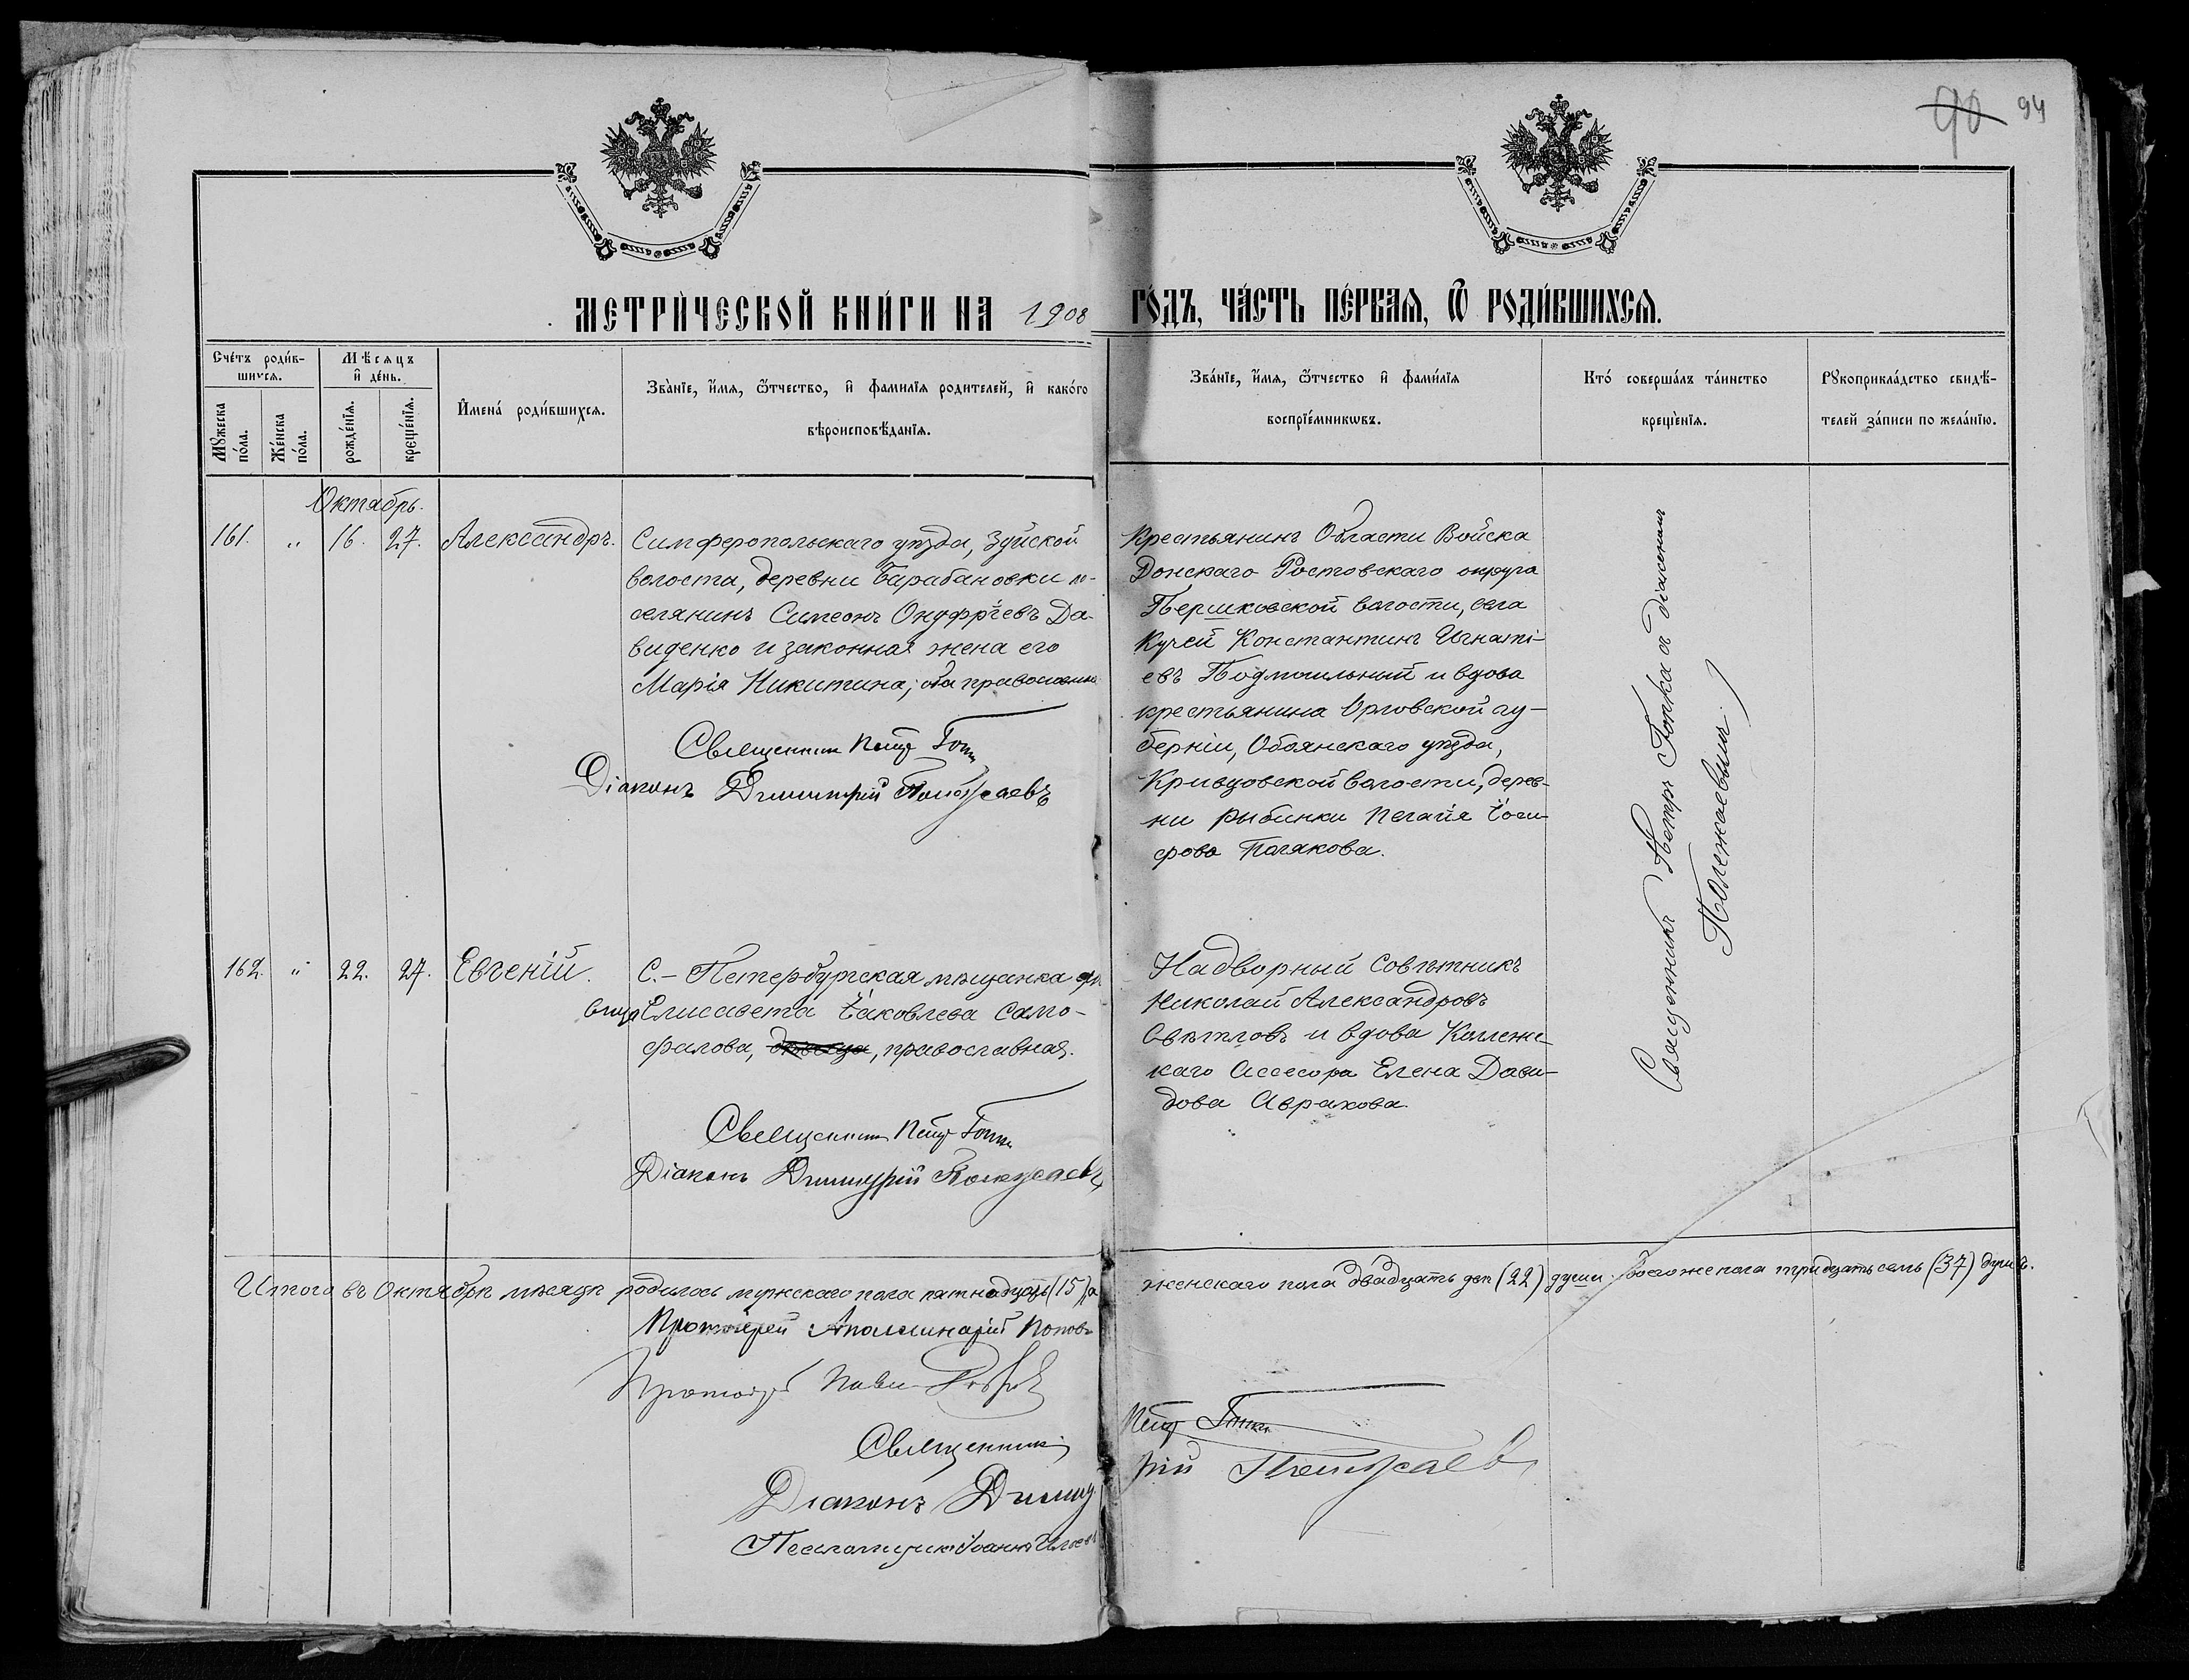 90 94
МЕТРИ́ЧЕСКОЙ КНИ́ГИ НА 1908 ГО́ДЪ, ЧА́СТЬ ПЕ́РВАЯ, Ѿ РОДИ́ВШИХСЯ.
Сче́тъ роди́в-
шихся.
Мꙋжеска по́ла.
Же́нска по́ла.
Мѣ́сяцъ
и҆ де́нь.
рожде́нїя.
креще́нїя.
И҆мена́ роди́вшихся.
Зва́нїе, и҆́мя, ѻ҆́тчество, и҆ фами́лїя роди́телей, и҆ како́го
вѣроисповѣ́данїя.
Зва́нїе, и҆́мя, ѻ҆́тчество и҆ фами́лїя
воспрїе́мникѡвъ.
Кто́ соверша́лъ та́инство
креще́нїя.
Рꙋкоприкла́дство свидѣ́-
телей за́писи по жела́нїю.
Октябрь.
161. „ 16. 27. Александръ.
Симферопольскаго уѣзда, Зуйской
волости, деревни Барабановки по-
селянинъ Симеонъ Онуфріевъ Да-
виденко и законная жена его
Марія Никитина; оба православные
Священникъ Петръ
Діаконъ Димитрій
Крестьянинъ Области Войска
Донскаго Ростовскаго округа
волости, села
Кугей Константинъ Игнаті-
евъ Подмогильный и вдова
крестьянина Орловской гу-
берніи, Обоянскаго уѣзда,
Кривцовской волости, дерев-
ни Рыбинки Пелагія
Полякова.
Священникъ Петръ съ діакономъ
162. „ 22. 27. Евгеній.
С.-Петербургская мѣщанка дѣ-
вица Елисавета Іаковлева Само-
фалова, дѣвица, православная.
Священникъ Петръ
Діаконъ Димитрій
Надворный Совѣтникъ
Николай Александровъ
Свѣтловъ и вдова Коллежс-
каго Ассесора Елена Дави-
дова Авракова.
Итого въ Октябрѣ мѣсяцѣ родилось мужскаго пола пятнадцать (15), а женскаго пола двадцать двѣ (22) души. Обоего же пола тридцать семь (37) душъ.
Протоіерей Аполлинарій Поповъ
Протоіерей
Священникъ Петръ
Діаконъ Димитрій
Псаломщикъ Іоаннъ